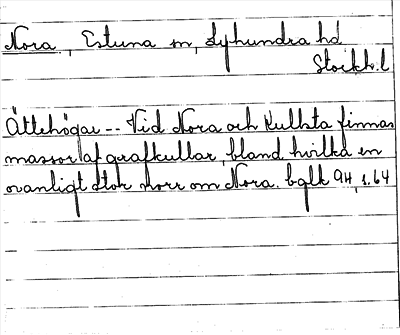 Nora, Estuna sn, Lyhundra hd
Stockh.l
Ättehögar -- Vid Nora och Kullsta finnas
massor af grafkullar, bland hvilka en
ovanligt stor norr om Nora. bglk 94, s.64